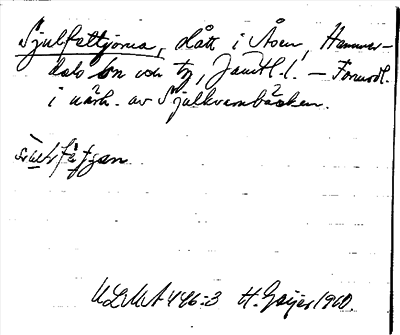 Sjulfelttjørna, slått i Åsen, Hammer-
dals sn och tg, Jämtl. l. — Förmodl.
i närh. av Sjulkvarnbäcken.
ULMA 446:3 H. Geijer 1960.